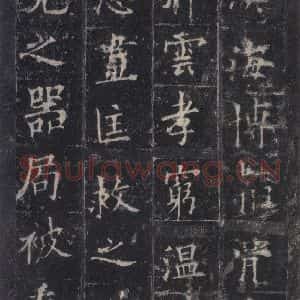 海博
雲孝窮温
盡匡救之
之器局被
Shufawang.CN